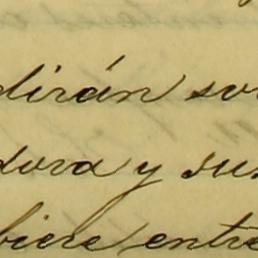 dirán so
dora y su
biere entre